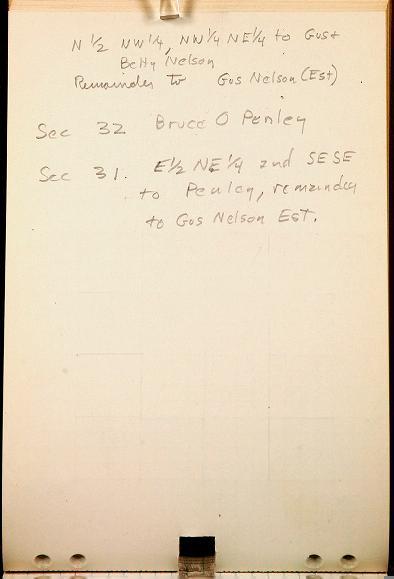 N ½ NW¼, NW¼ NE¼ to Gus &
Betty Nelson
Remainder to Gus Nelson (Est)
Sec 32 Bruce O Penley
Sec 31. E½ NE¼ and SESE
to Penley, remainder
to Gus Nelson Est.